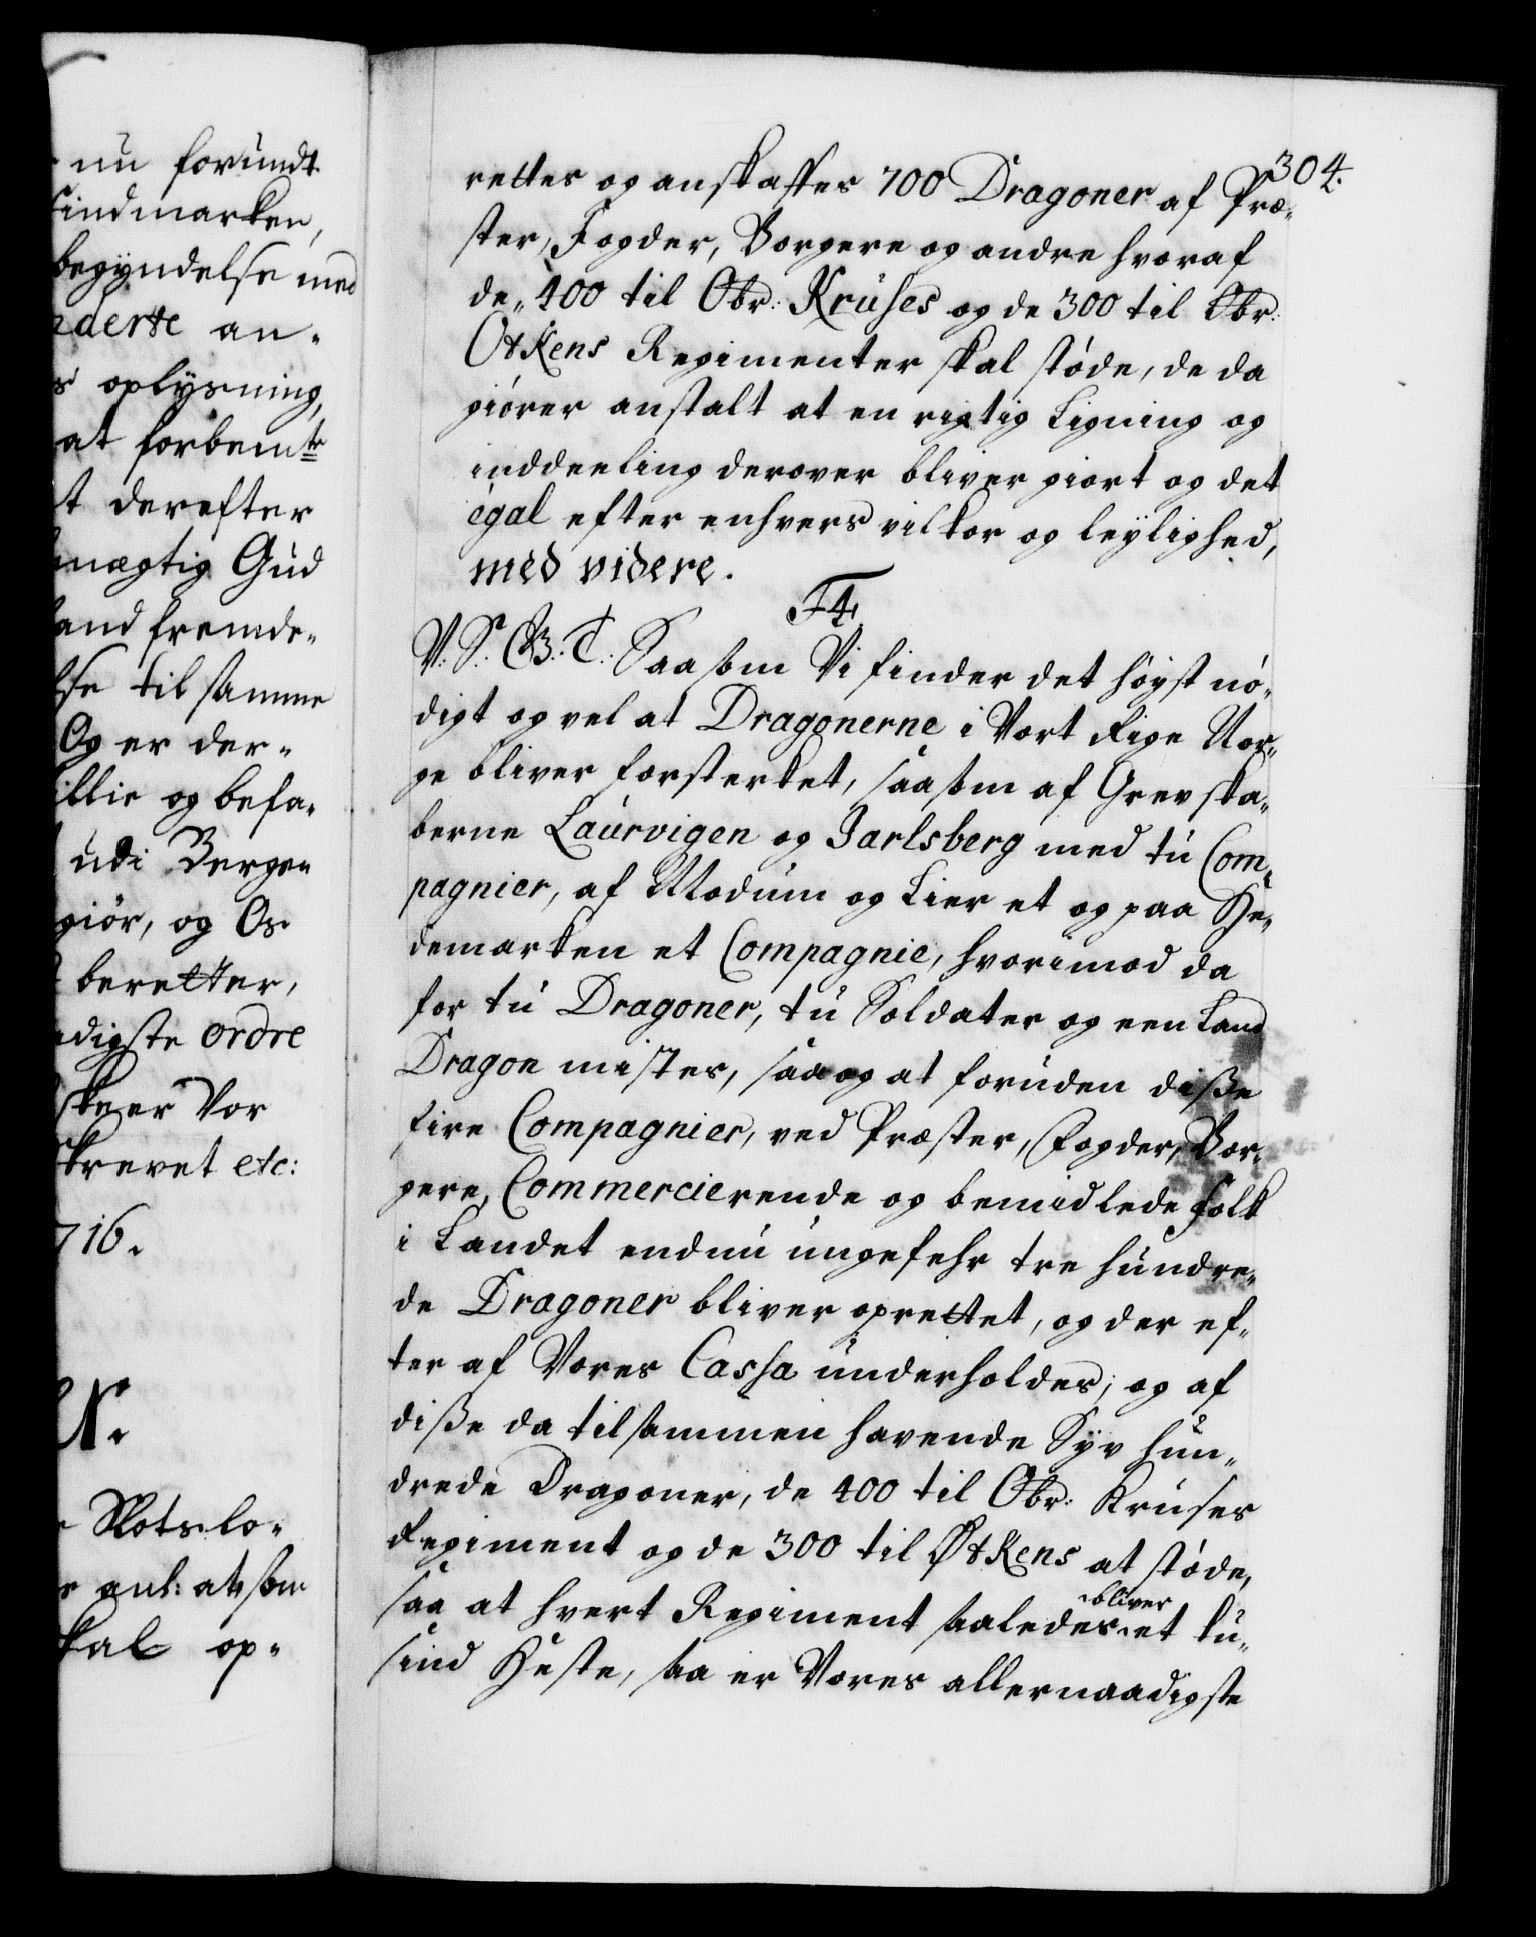 nu forundt
Findmarken,
begyndelse med
aderte an-
s oplysning,
at forbemte
t derefter
mægtig Gud
and fremde-
lse til samme
Og er der-
illie og befa-
udi Bergen
giør, og Os
beretter,
adigste ordre
skeer Vor
skrevet etc:
716.
N.
Slotslo-
anl: at som
skal op-
304.
rettes og anskaffes 700 Dragoner af Præ-
ster, Fogder, Borgere og andre hvoraf
de 400 til Obr: Kruses og de 300 til Obr:
Øtkens Regimenter skal støde, de da
giører anstalt at en rigtig Ligning og
inddeeling derover bliver giort og det
egal efter enhvers vilkor og leylighed,
med videre.
F4.
V: S: G: T: Saasom Vi finder det høyst nö-
digt og vel at Dragonerne i Vort Rige Nor-
ge bliver forsterket, saasom af Grevska-
berne Laurvigen og Jarlsberg med tu Com-
pagnier, af Modum og Lier et og paa He-
demarken et Compagnie, hvorimod da
for tu Dragoner, tu Soldater og een Land
Dragon mistes, saa og at foruden diße
fire Compagnier, ved Præster, Fogder, Bor-
gere, Commercierende og bemidlede Folk
i Landet endnu ungefehr tre hundre-
de Dragoner bliver oprettet, og der ef-
ter af Vores Cassa underholdes; og af
diße da tilsammen havende Syv hun-
drede Dragoner, de 400 til Obr: Kruses
Regiment og de 300 til Øtkens at støde,
saa at hvert Regiment saaledes bliver et tu-
sind Heste, saa er Vores allernaadigste